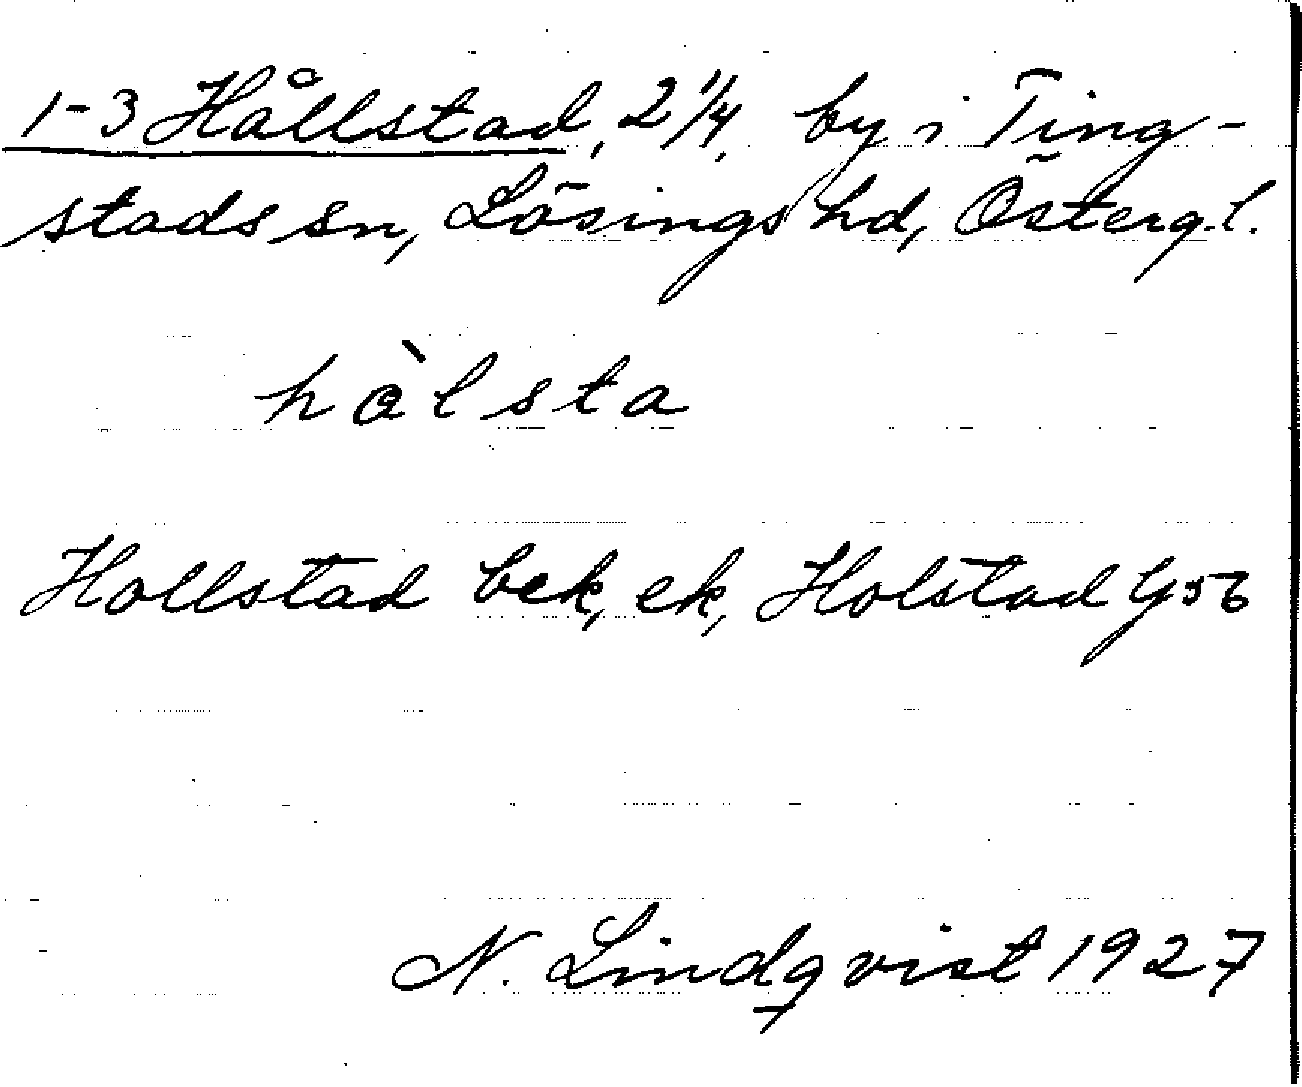 1-3 Hållstad, 2 1/4, by i Ting-
stads sn, Lösings hd, Östergl.
hålsta
Hollstad bek, ek, Holstad G56
N. Lindqvist 1927